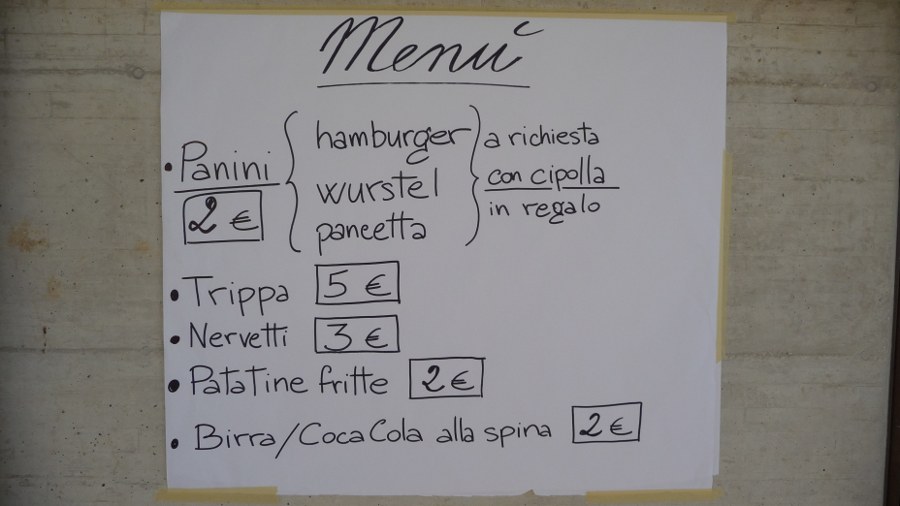 Menú
• Panini
2 €
hamburger
wurstel
pancetta
a richiesta
con cipolla
in regalo
• Trippa 5 €
• Nervetti 3 €
• Patatine fritte 2 €
• Birra/Coca Cola alla spina 2 €